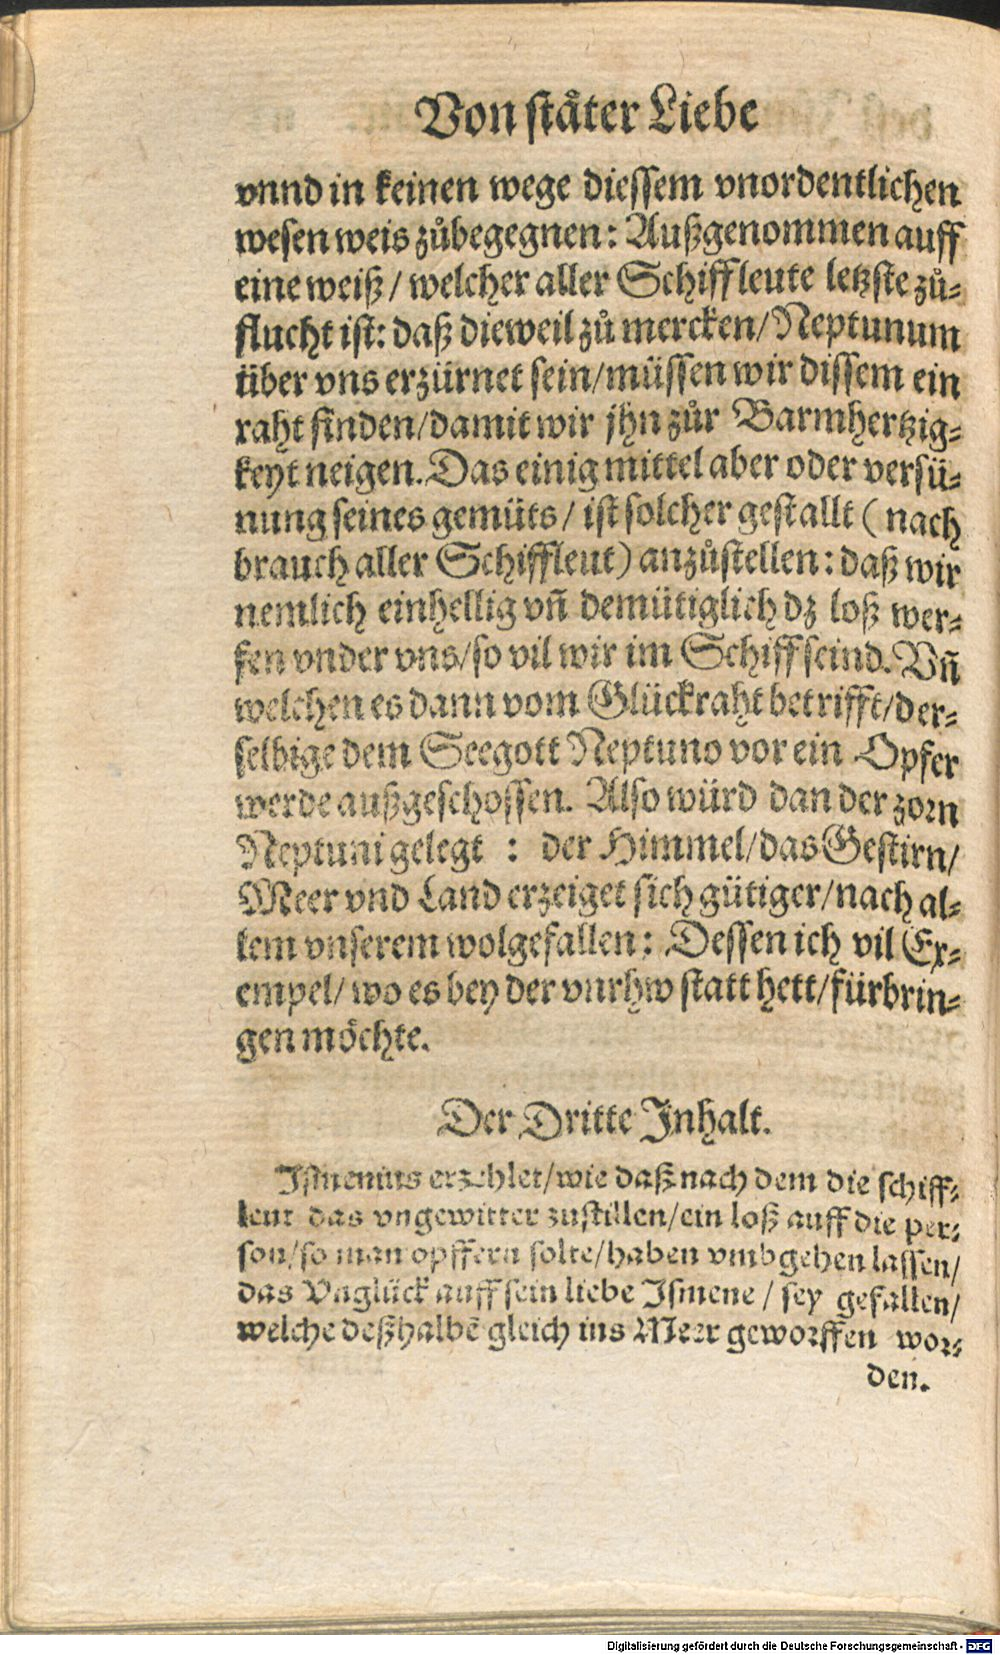 Von ståter Liebe
vnnd in keinen wege diessem vnordentlichen
wesen weis zůbegegnen: Außgenommen auff
eine weiß/ welcher aller Schiffleute letzste zů-
flucht ist: daß dieweil zů mercken/ Neptunum
über vns erzürnet sein/müssen wir dissem ein
raht finden/damit wir jhn zůr Barmhertzig-
keyt neigen. Das einig mittel aber oder versü-
nung seines gemüts/ ist solcher gestallt (nach
brauch aller Schiffleut) anzůstellen: daß wir
nemlich einhellig vñ demütiglich dz loß wer-
fen vnder vns/so vil wir im Schiff seind. Vñ
welchen es dann vom Glückraht betrifft/der-
selbige dem Seegott Neptuno vor ein Opfer
werde außgeschossen. Also würd dan der zorn
Neptuni gelegt : der Himmel/das Gestirn/
Meer vnd Land erzeiget sich gütiger/nach al-
lem vnserem wolgefallen: Dessen ich vil Ex-
empel/ wo es bey der vnrhw statt hett/fürbrin-
gen möchte.
Der Dritte Inhalt.
Ismenius erzehlet/wie daß nach dem die schiff-
leut das vngewitter zustillen/ein loß auff die per-
son/so man opffern solte/haben vmbgehen lassen/
das Vnglück auff sein liebe Ismene / sey gefallen/
welche deßhalbẽ gleich ins Meer geworffen wor-
den.
Digitalisierung gefördert durch die Deutsche Forschungsgemeinschaft - DFG